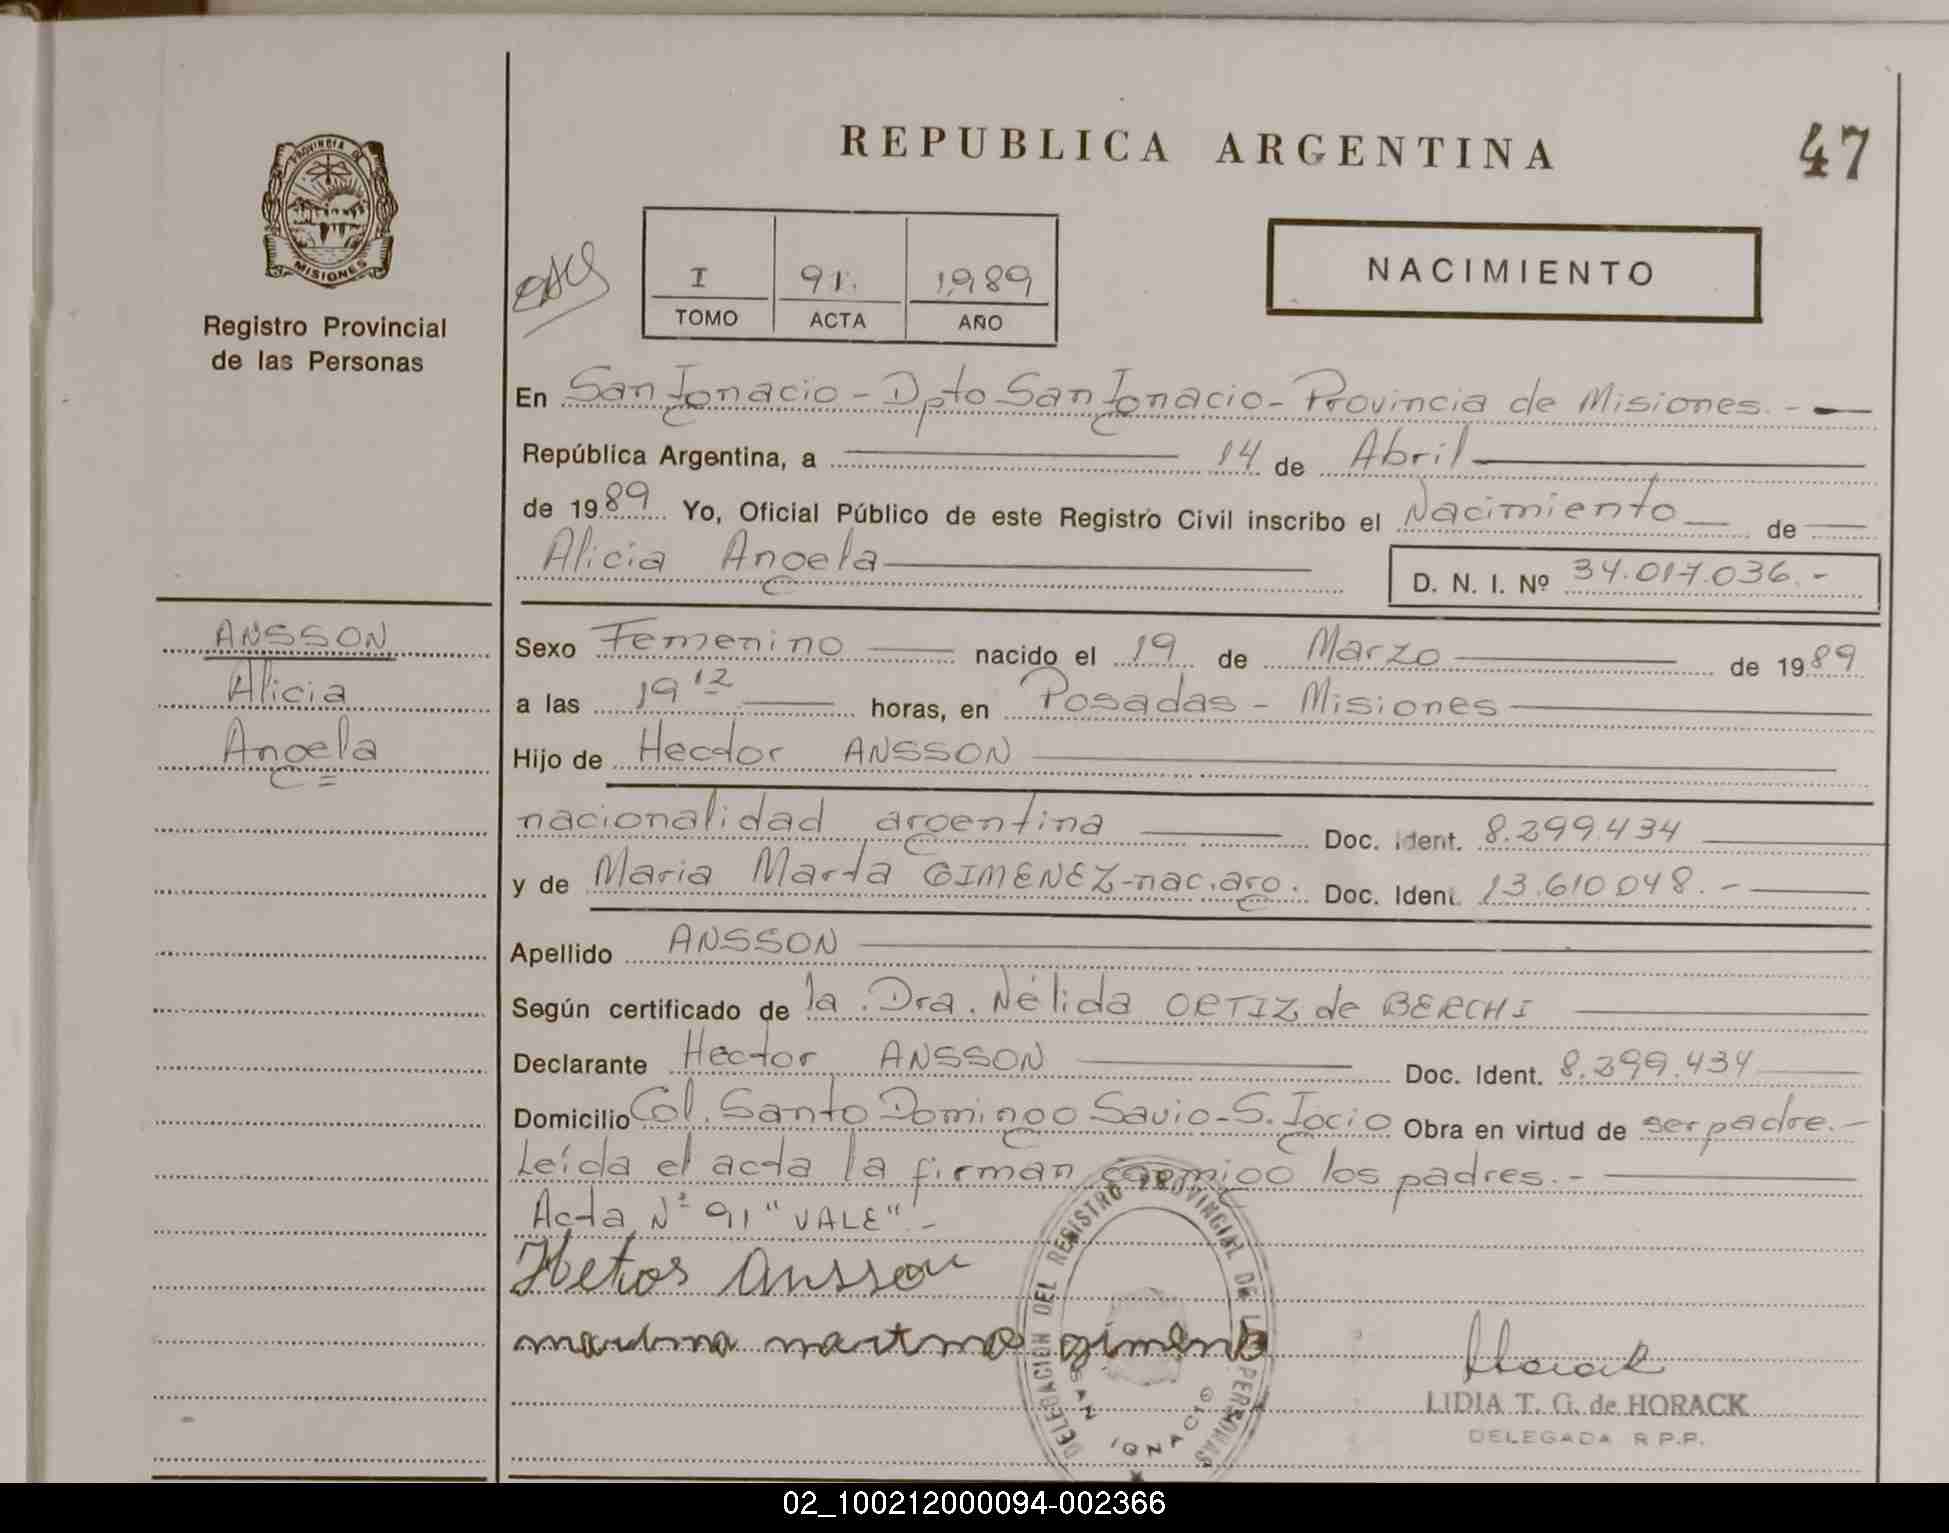 REPUBLICA ARGENTINA
47
PROVINCIA DE
MISIONES
Registro Provincial
de las Personas
I 91. 1989
TOMO ACTA AÑO
NACIMIENTO
En San Ignacio - Dpto San Ignacio - Provincia de Misiones. -
República Argentina, a 14 de Abril
de 1989 Yo, Oficial Público de este Registro Civil inscribo el Nacimiento de
Alicia Angela
D. N. I. Nº 34.017.036.-
ANSSON
Alicia
Angela
Sexo Femenino nacido el 19 de Marzo de 1989
a las 19 12 horas, en Posadas - Misiones
Hijo de Hector ANSSON
nacionalidad argentina Doc. Ident. 8.299.434
y de Maria Marta GIMENEZ-nac.arg. Doc. Ident. 13.610.048.-
Apellido ANSSON
Según certificado de la Dra. Nélida ORTIZ de BERCHI
Declarante Hector ANSSON Doc. Ident. 8.299.434
Domicilio Col. Santo Domingo Savio - S. Igcio Obra en virtud de ser padre.-
Leída el acta la firman conmigo los padres.-
Acta Nº 91 "VALE".-
Hetor Ansson
gimene
DELEGACION DEL REGISTRO PROVINCIAL DE L PERSONAS
SAN IGNACIO
Horack
LIDIA T. G. de HORACK
DELEGADA R.P.P.
02_100212000094-002366